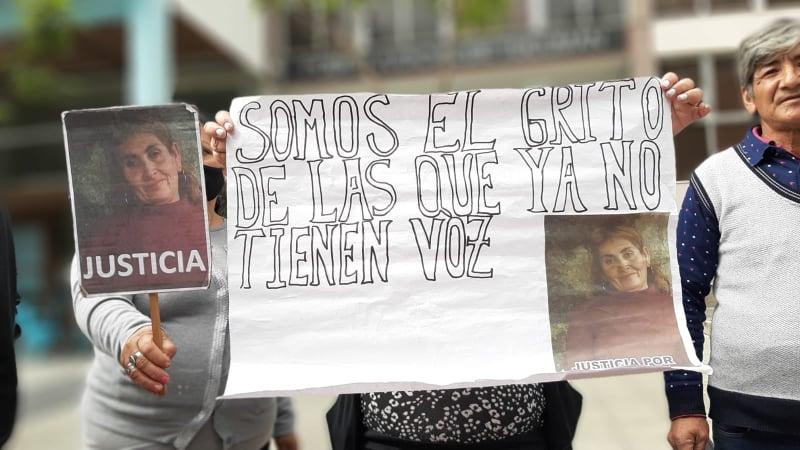 SOMOS EL GRITO
DE LAS QUE YA NO
TIENEN VOZ
JUSTICIA
JUSTICIA POR